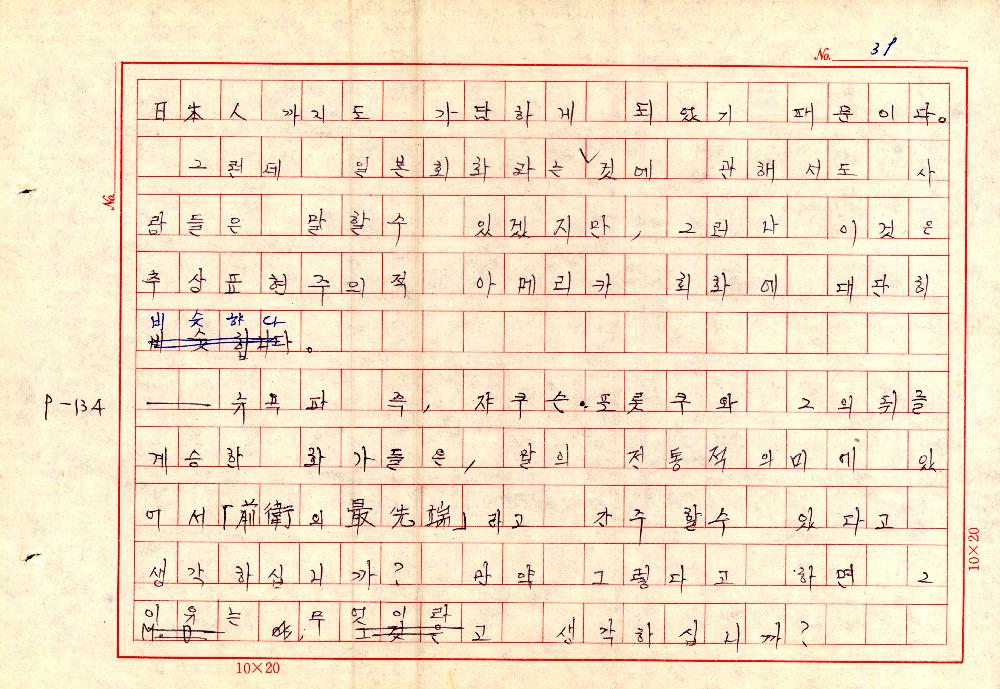 No. 39
日本人 까지도 가단하게 되었기 때문이다。
그런데 일본회화라는 것에 관해서도 사
람들은 말할수 있겠지만, 그러나 이것은
추상표현주의적 아메리카 회화에 대단히
비슷하다
비슷합니다。
P-134 —— 뉴욕파 즉, 쟈쿠슨·포롯쿠와 그의 뒤를
계승한 화가들은, 말의 전통적의미에 있
어서「前衛의 最先端」라고 간주 할수 있다고
생각하십니까? 만약 그렇다고 하면 그
이유는 무엇이라고 생각하십니까?
No.
10×20
10×20